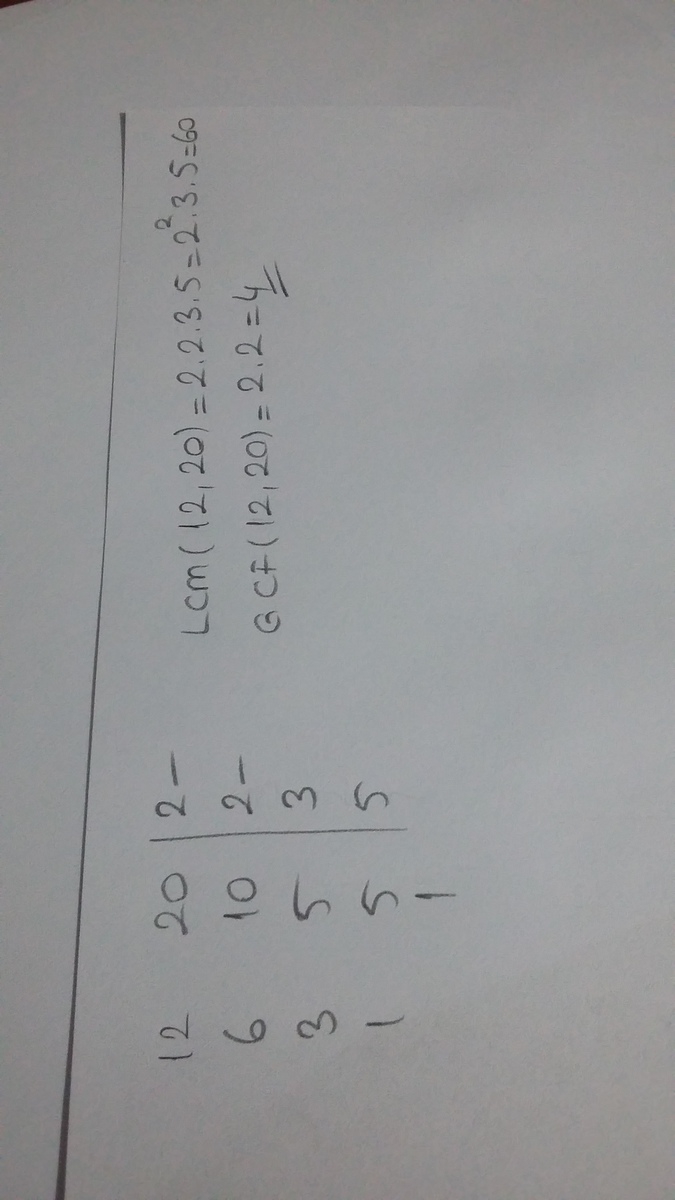 12 20 | 2 –
6 10 | 2 –
3 5 | 3
1 5 | 5
1
Lcm(12,20)=2.2.3.5=2².3.5=60
GCF(12,20)=2.2=4